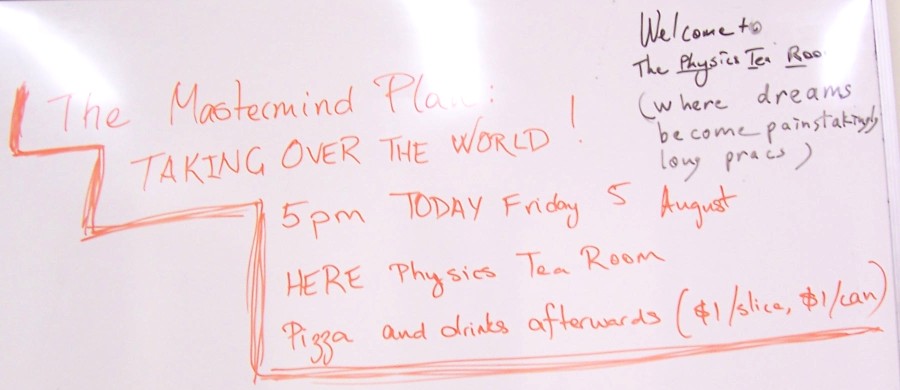 Welcome to
The Physics Tea Roo
(where dreams
become painstakingly
long pracs)
The Mastermind Plan:
TAKING OVER THE WORLD!
5pm TODAY Friday 5 August
HERE Physics Tea Room
Pizza and drinks afterwards ($1/slice, $1/can)